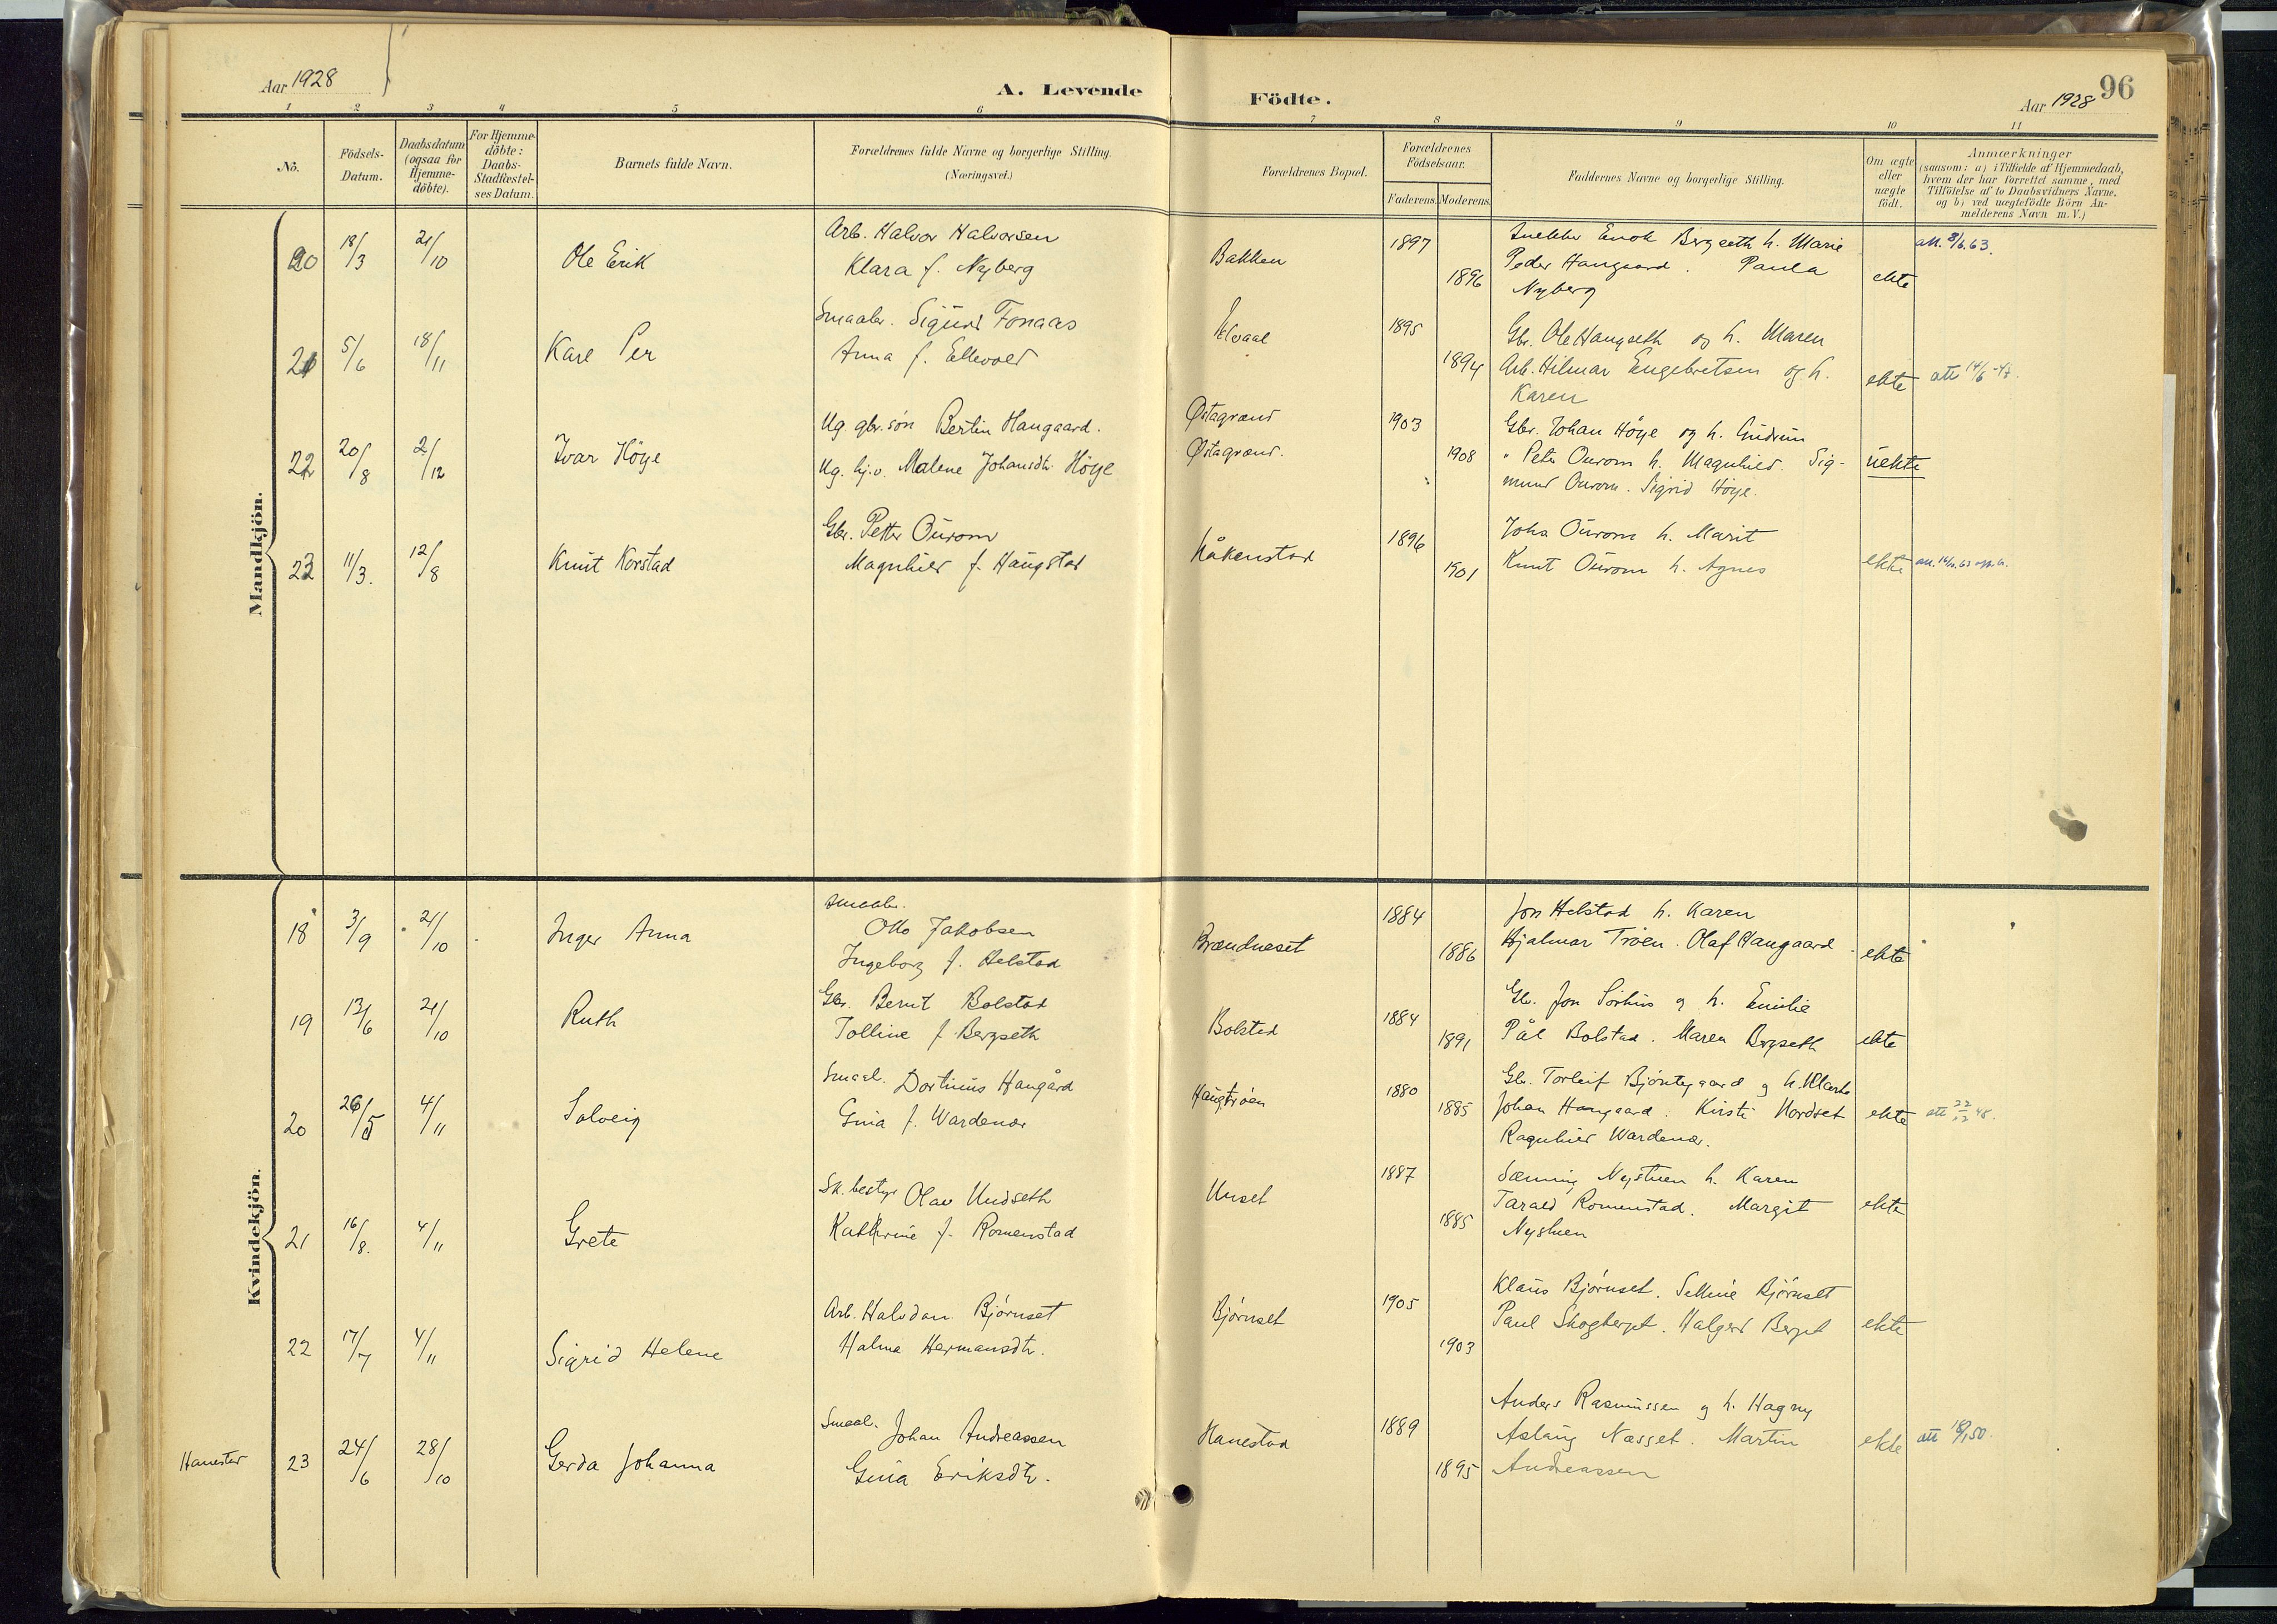 Aar 1928
A. Levende Födte.
Aar 1928
96
1 2 3 4 5 6 7 8 9 10 11
No.
Födsels-Datum.
Daabsdatum (ogsaa for Hjemme-döbte).
For Hjemme-döbte: Daabs-Stadfæstel-ses Datum.
Barnets fulde Navn.
Forældrenes fulde Navne og borgerlige Stilling.
(Næringsvei.)
Forældrenes Bopæl.
Forældrenes Födselsaar.
Faderens. Moderens.
Faddernes Navne og borgerlige Stilling.
Om ægte eller uægte födt.
Anmærkninger
(saasom: a) i Tilfælde af Hjemmedaab,
hvem der har forrettet samme, med
Tilföielse af to Daabsvidners Navne.
og b) ved uægtefödte Börn An-
melderens Navn m. V.)
Mandkjön.
20 18/3 21/10 Ole Erik
Arb. Halvor Halvorsen
Klara f. Nyberg
Bakken 1897 1896
Snekker Enok Bergseth h. Marie
Peder Haugaard. Paula
Nyberg
ekte att. 8/6.63.
21 5/6 18/11 Kåre Per
Smaabr. Sigurd Fonaas
Anna f. Ellevold
Elvaal 1895 1894
Gbr. Ole Haugseth og h. Maren
Arb. Hilmar Engebretsen og h.
Karen
ekte att 14/6-47.
22 20/8 2/12 Ivar Höye
Ug. gbr. søn Bertin Haugaard.
Ug. hj.v. Malene Johansdtr. Höye
Østagrend
Østagrend.
1903 1908
Gbr. Johan Höye og h. Gudrun
" Peter Ourom h. Magnhild. Sig-
mund Ourom. Sigrid Höye.
uekte
23 11/3. 12/8 Knut Korstad
Gbr. Petter Ourom
Magnhild f. Haugstad
Håkenstad 1896 1901
Johs Ourom h. Marit
Knut Ourom h. Agnes
ekte
Kvindekjön.
18 3/9 21/10 Inger Anna
Smaabr.
Otto Jakobsen
Ingeborg f. Helstad
Brændneset 1884 1886
Jon Helstad h. Karen
Hjalmar Tröen. Olaf Haugaard
ekte
19 13/6 21/10 Ruth
Gbr. Bernt Bolstad
Tolline f. Bergseth
Bolstad 1884 1891
Gbr. Jon Sörhus og h. Emilie
Pål Bolstad. Maren Bergseth
ekte
20 26/5 4/11 Solveig
Smaal. Dortinus Haugård
Gina f. Wardenær
Haugtröen 1880 1885
Gbr. Torleif Bjöntegaard og h. Klara
Johan Haugaard. Kirsti Nordset
Ragnhild Wardenær.
ekte
21 16/8. 4/11 Grete
Sk. bestyr Olav Undseth
Kathrine f. Romenstad
Unset 1887 1885
Sæming Nystuen h. Karen
Tarald Romenstad. Margit
Nystuen
ekte
22 17/7 4/11 Sigrid Helene
Arb. Halvdan Bjørnset
Halma Hermansdtr.
Bjørnset 1905 1903
Klaus Bjørnset. Selline Bjørnset
Paul Skogberget. Halgerd Berget
ekte
Hanestad
23 24/6 28/10 Gerda Johanna
Smaal. Johan Andreassen
Gina Eriksdtr.
Hanestad 1889 1895
Anders Rasmussen og h. Hagny
Aslaug Næsset. Martin
Andreassen
ekte